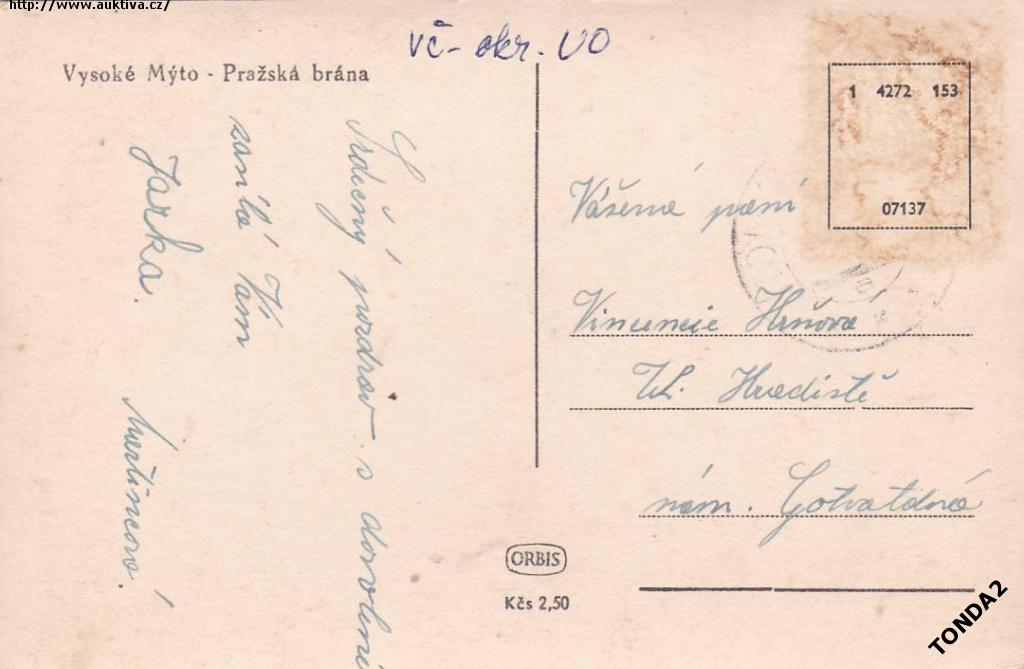 http://www.auktiva.cz/
VČ - okr. ÚO
Vysoké Mýto - Pražská brána
1 4272 153
07137
Srdečný pozdrav s dovolení
zasílá Vám
Jarka.
Vážená paní
Vincencie Hrňová
Uh. Hradiště
nám. Gotvaldova
ORBIS
Kčs 2,50
TONDA2